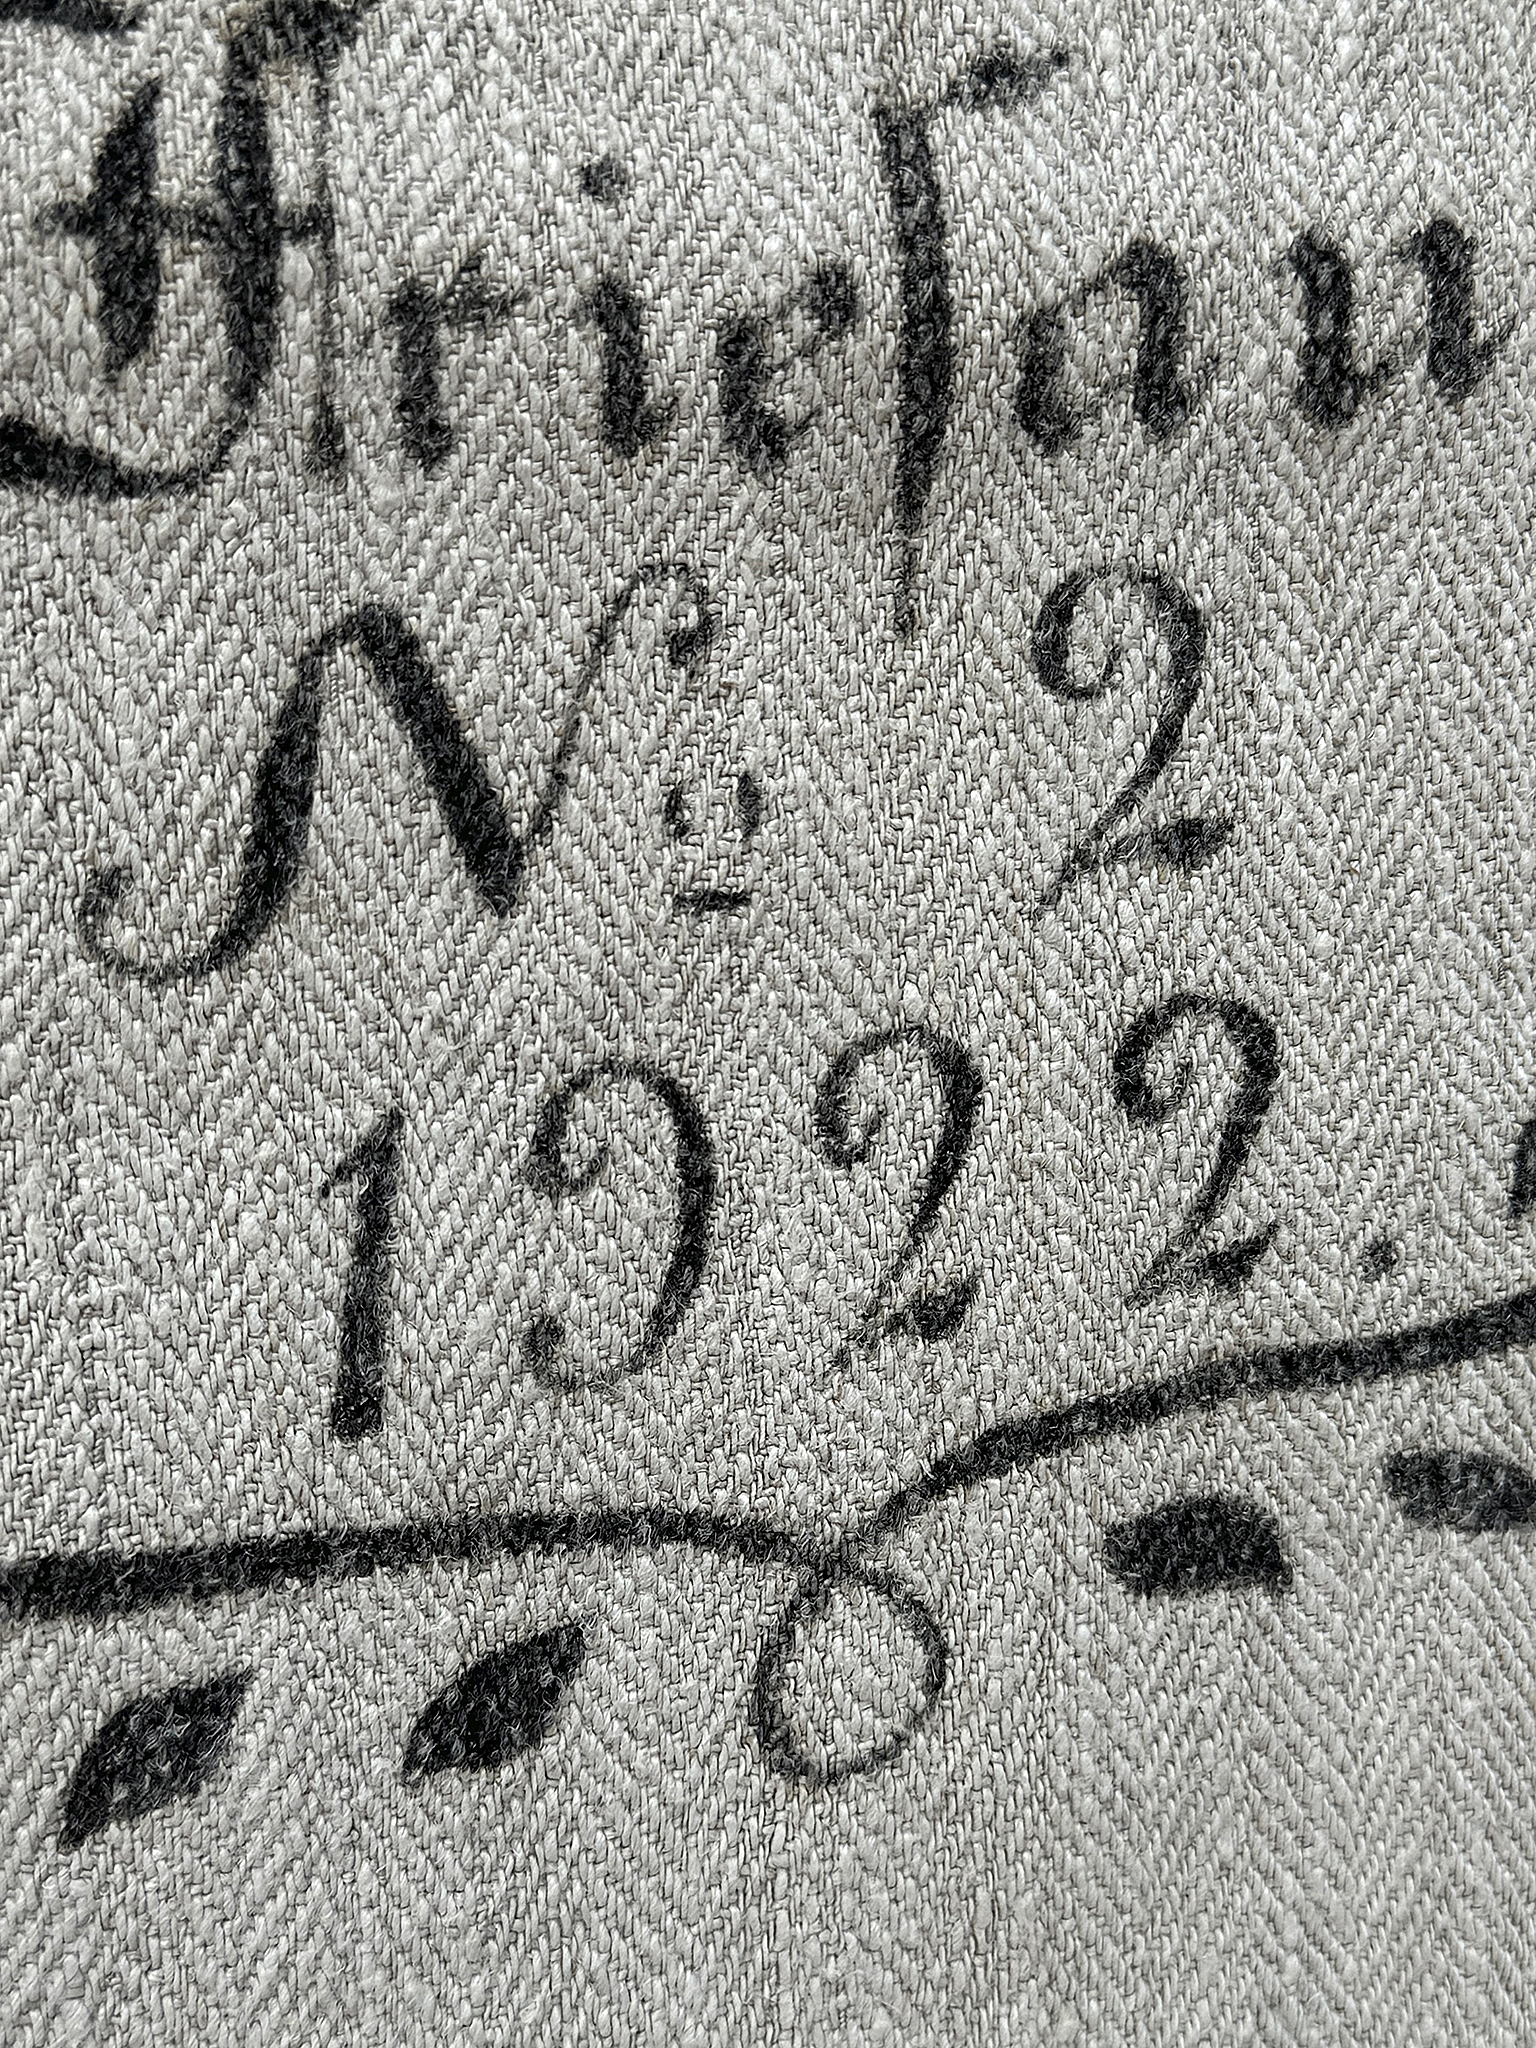 Friesau
№ 2
1922.